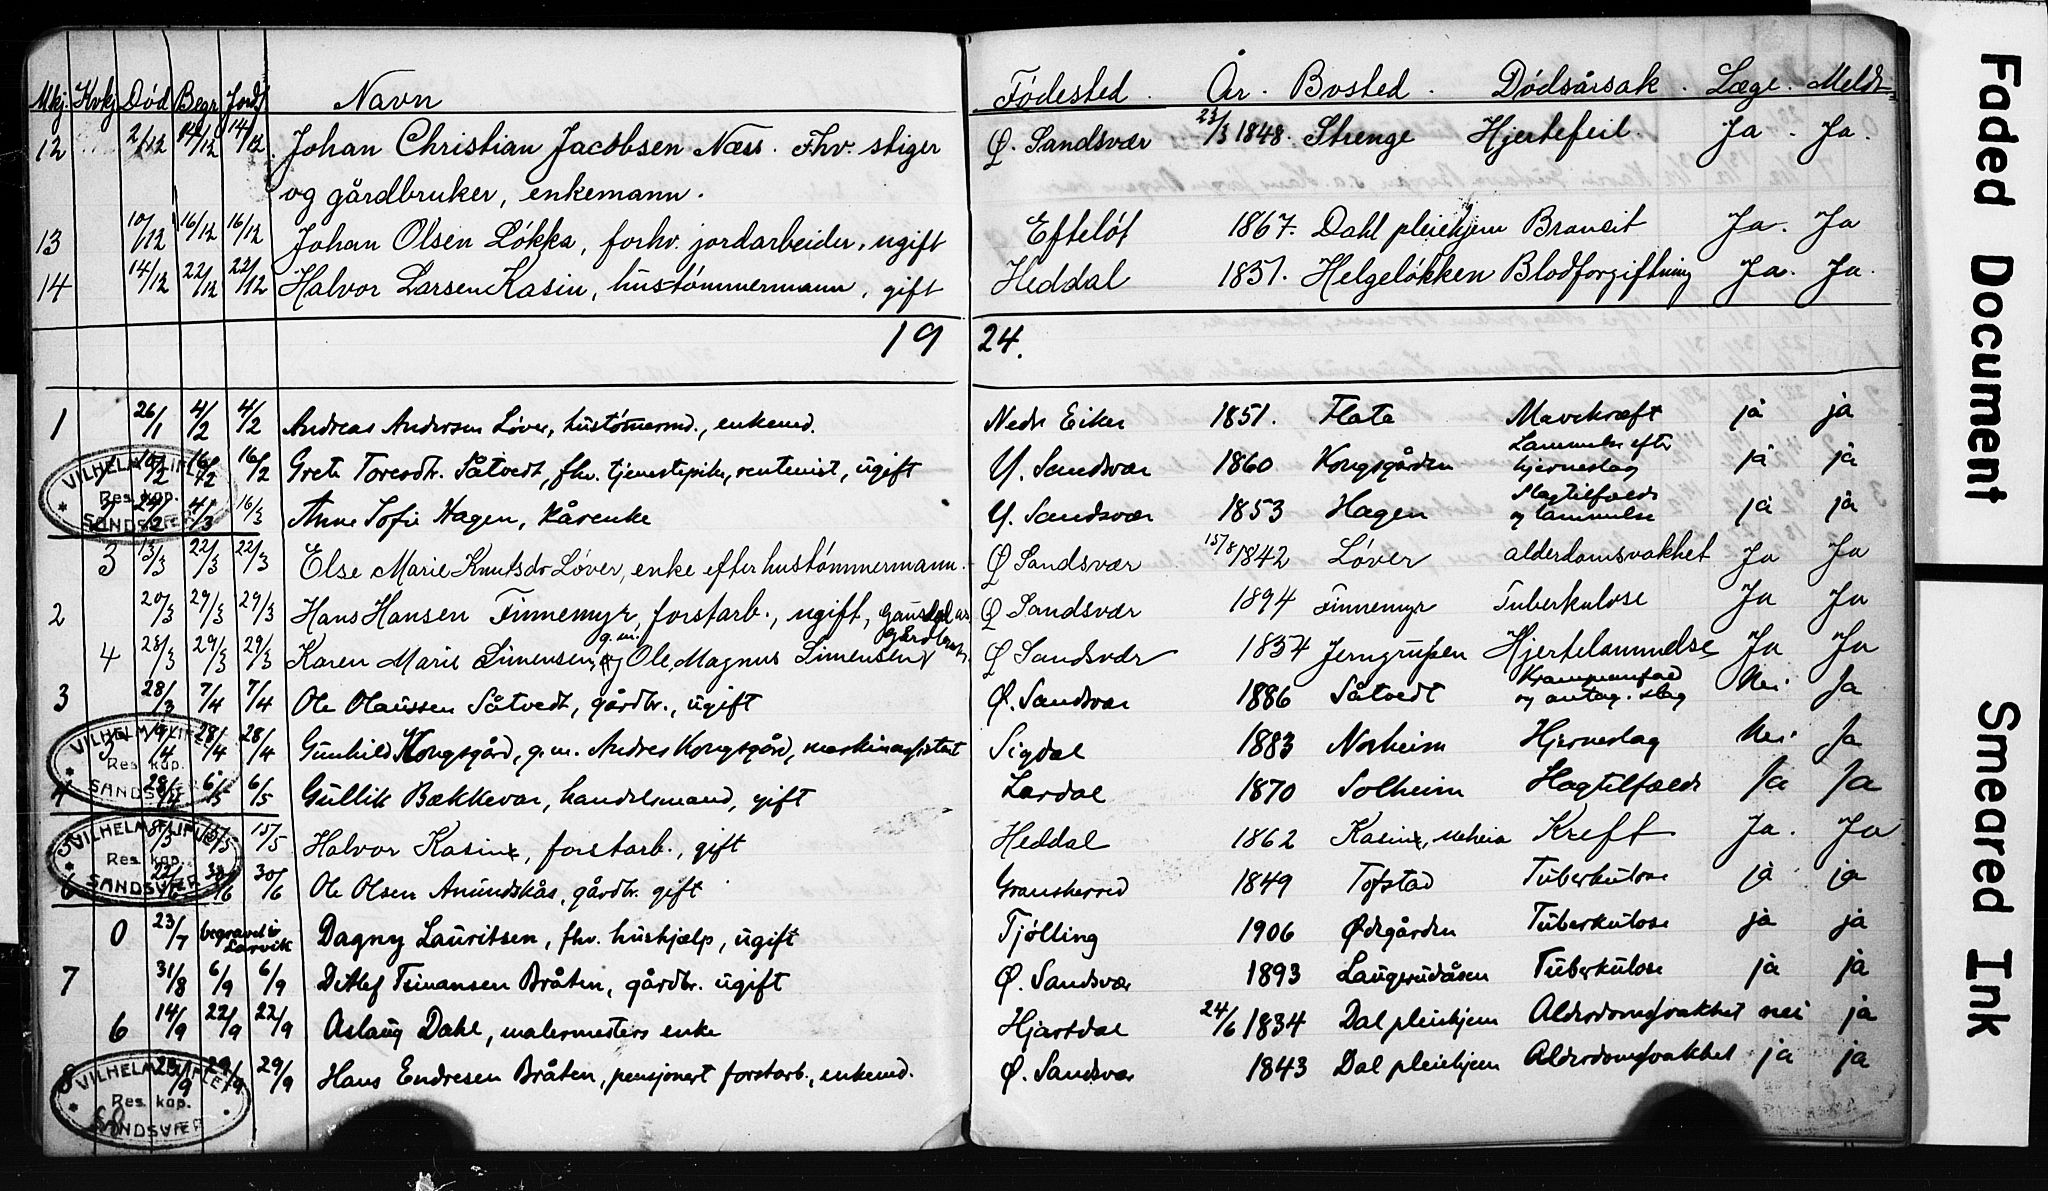 Mkj. Kvkj Død Begr. Jordf. Navn Fødested. År. Bosted. Dødsårsak. Læge. Meldt
12 2/12 14/12 14/12 Johan Christian Jacobsen Næss. Fhv. stiger Ø. Sandsvær 23/3 1848. Strenge Hjertefeil. Ja. Ja.
og gårdbruker, enkemann.
13 10/12 16/12 16/12 Johan Olsen Løkka, forhv. jordarbeider, ugift Efteløt 1867. Dahl pleiehjem Brancit Ja. Ja
14 14/12 22/12 22/12 Halvor Larsen Kasin, hustømmermann, gift Heddal 1851. Helgeløkken Blodforgiftning Ja. Ja.
1924.
1 26/1 4/2 4/2 Andreas Andersen Løver, hustømermd., enkemd. Nedr Eiker 1851. Flata Mavekræft ja ja
16/2 16/2 Grete Toresdtr. Såtvedt, fhv. tjenestepike, rentenist, ugift Y. Sandsvær 1860 Kongsgården Lammelse efter hjerneslag ja ja
2 24/2 4/3 16/3 Anne Sofie Hagen, kårenke Y. Sandsvær 1853 Hagen Slagtilfælde og lammelse ja ja
3 13/3 22/3 22/3 Else Marie Knutsdr Løver, enke efter hustømmermann. Ø Sandsvær 15/8 1842 Løver alderdomsvakhet Ja Ja
2 20/3 29/3 29/3 Hans Hansen Finnemyr, forstarb., ugift, Ø Sandsvær 1894 Finnemyr Tuberkulose Ja Ja
4 28/3 29/3 29/3 Karen Marie Simensen, g.m. Ole Magnus Simensen Gårdbruk. Ø Sandsvær 1854 Jerngruben Hjertelammelse Ja Ja
3 28/3 7/4 7/4 Ole Olaussen Såtvedt, gårdbr., ugift Ø. Sandsvær 1886 Såtvedt Krampeanfald og antag. slag Nei Ja
28/4 28/4 Gunhild Kongsgård, g.m. Andres Kongsgård, maskinassistent Sigdal 1883 Norheim Hjerneslag Nei. Ja
4 28/4 6/5 6/5 Gullik Bækkevar, handelsmand, gift Lardal 1870 Solheim Slagtilfælde Ja Ja
15/5 15/5 Halvor Kasin, forstarb., gift Heddal 1862 Kasin, Kreft Ja. Ja
6 22/6 30/6 30/6 Ole Olsen Amundskås, gårdbr. gift Gransherred 1849 Tofstad Tuberkulose ja ja
0 23/7 begravet i Larvik Dagny Lauritsen, fhv. hushjælp, ugift Tjølling 1906 Ødegården Tuberkulose ja ja
7 31/8 6/9 6/9 Ditlef Bråten, gårdbr. ugift Ø. Sandsvær 1893 Laugerudåsen Tuberkulose ja ja
6 14/9 22/9 22/9 Aslaug Dahl, malermesters enke Hjartdal 24/6 1834 Dal pleiehjem Alderdomsvakhet nei ja
8 29/9 29/9 Hans Endresen Bråten, pensjonert forstarb., enkemd. Ø. Sandsvær 1843 Dal pleiehjem Alderdomsvakhet ja ja
VILHELM FLIFLET
Res. kap.
SANDSVÆR
VILHELM FLIFLET
Res. kap.
SANDSVÆR
VILHELM FLIFLET
Res. kap.
SANDSVÆR
VILHELM FLIFLET
Res. kap.
SANDSVÆR
Faded Document
Smeared Ink